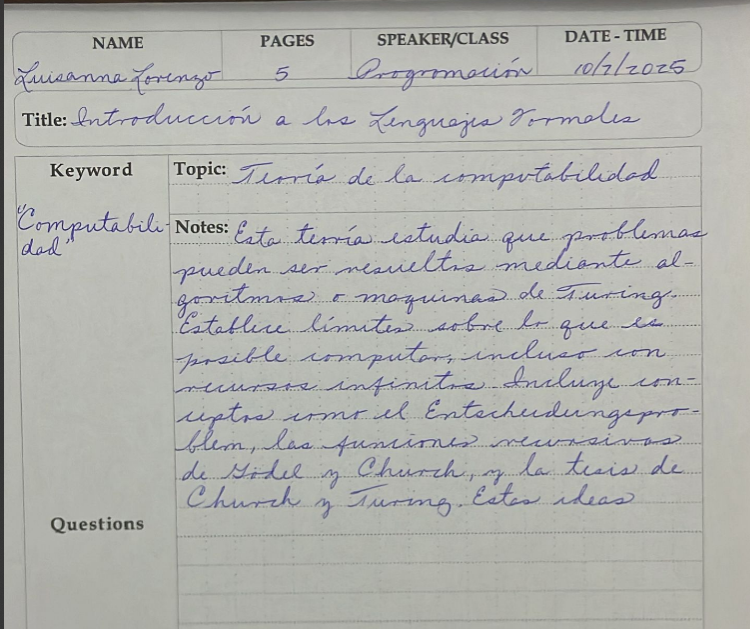 NAME PAGES SPEAKER/CLASS DATE - TIME
Luisanna Lorenzo 5 Programación 10/7/2025
Title: Introducción a los Lenguajes Formales
Keyword Topic: Teoría de la computabilidad
"Computabili-
dad"
Notes: Esta teoría estudia que problemas
pueden ser resueltos mediante al-
goritmos o maquinas de Turing.
Establece límites sobre lo que es
posible computar, incluso con
recursos infinitos. Incluye con-
ceptos como el Entscheidungspro-
blem, las funciones recursivas
de Godel y Church, y la tesis de
Church y Turing. Estas ideas
Questions